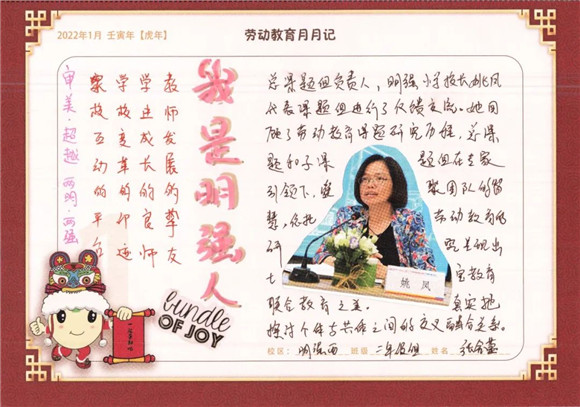 2022年1月 壬寅年【虎年】
劳动教育月月记
审美·超越 两明两强
家校互动的平台
学校变革的印迹
学生成长的良师
教师发展的挚友
我是明强人
bundle
OF JOY
总课题组负责人,明强小学校长姚凤
代表课题组进行了反馈交流。她回
顾了劳动教育课题研究历程,总课
题和子课 题组在专家
引领下,凝 聚团队的智
慧,依托 劳动教育的
研
姚 凤
联合教育之美。 真实地
探讨个体与共体之间的交叉融合之美。
校区: 明强西 班级 二年级组 姓名